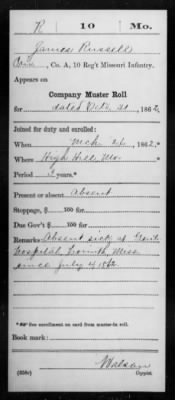 R 10 Mo.
James Russell
Co. A, 10 Reg't Missouri Infantry.
Appears on
Company Muster Roll
for dated Oct. 31, 1862
Joined for duty and enrolled:
When Mch 26, 1862.
Where High Hill, Mo.
Period 3 years.*
Present or absent Absent
Stoppage, $ 100 for
Due Gov't $ 100 for
Remarks: Absent sick at Genl
Hospital, Corinth, Miss
since July 4/1862.
*See enrollment on card from muster-in roll.
Book mark:
Watson
(858c) Copyist.